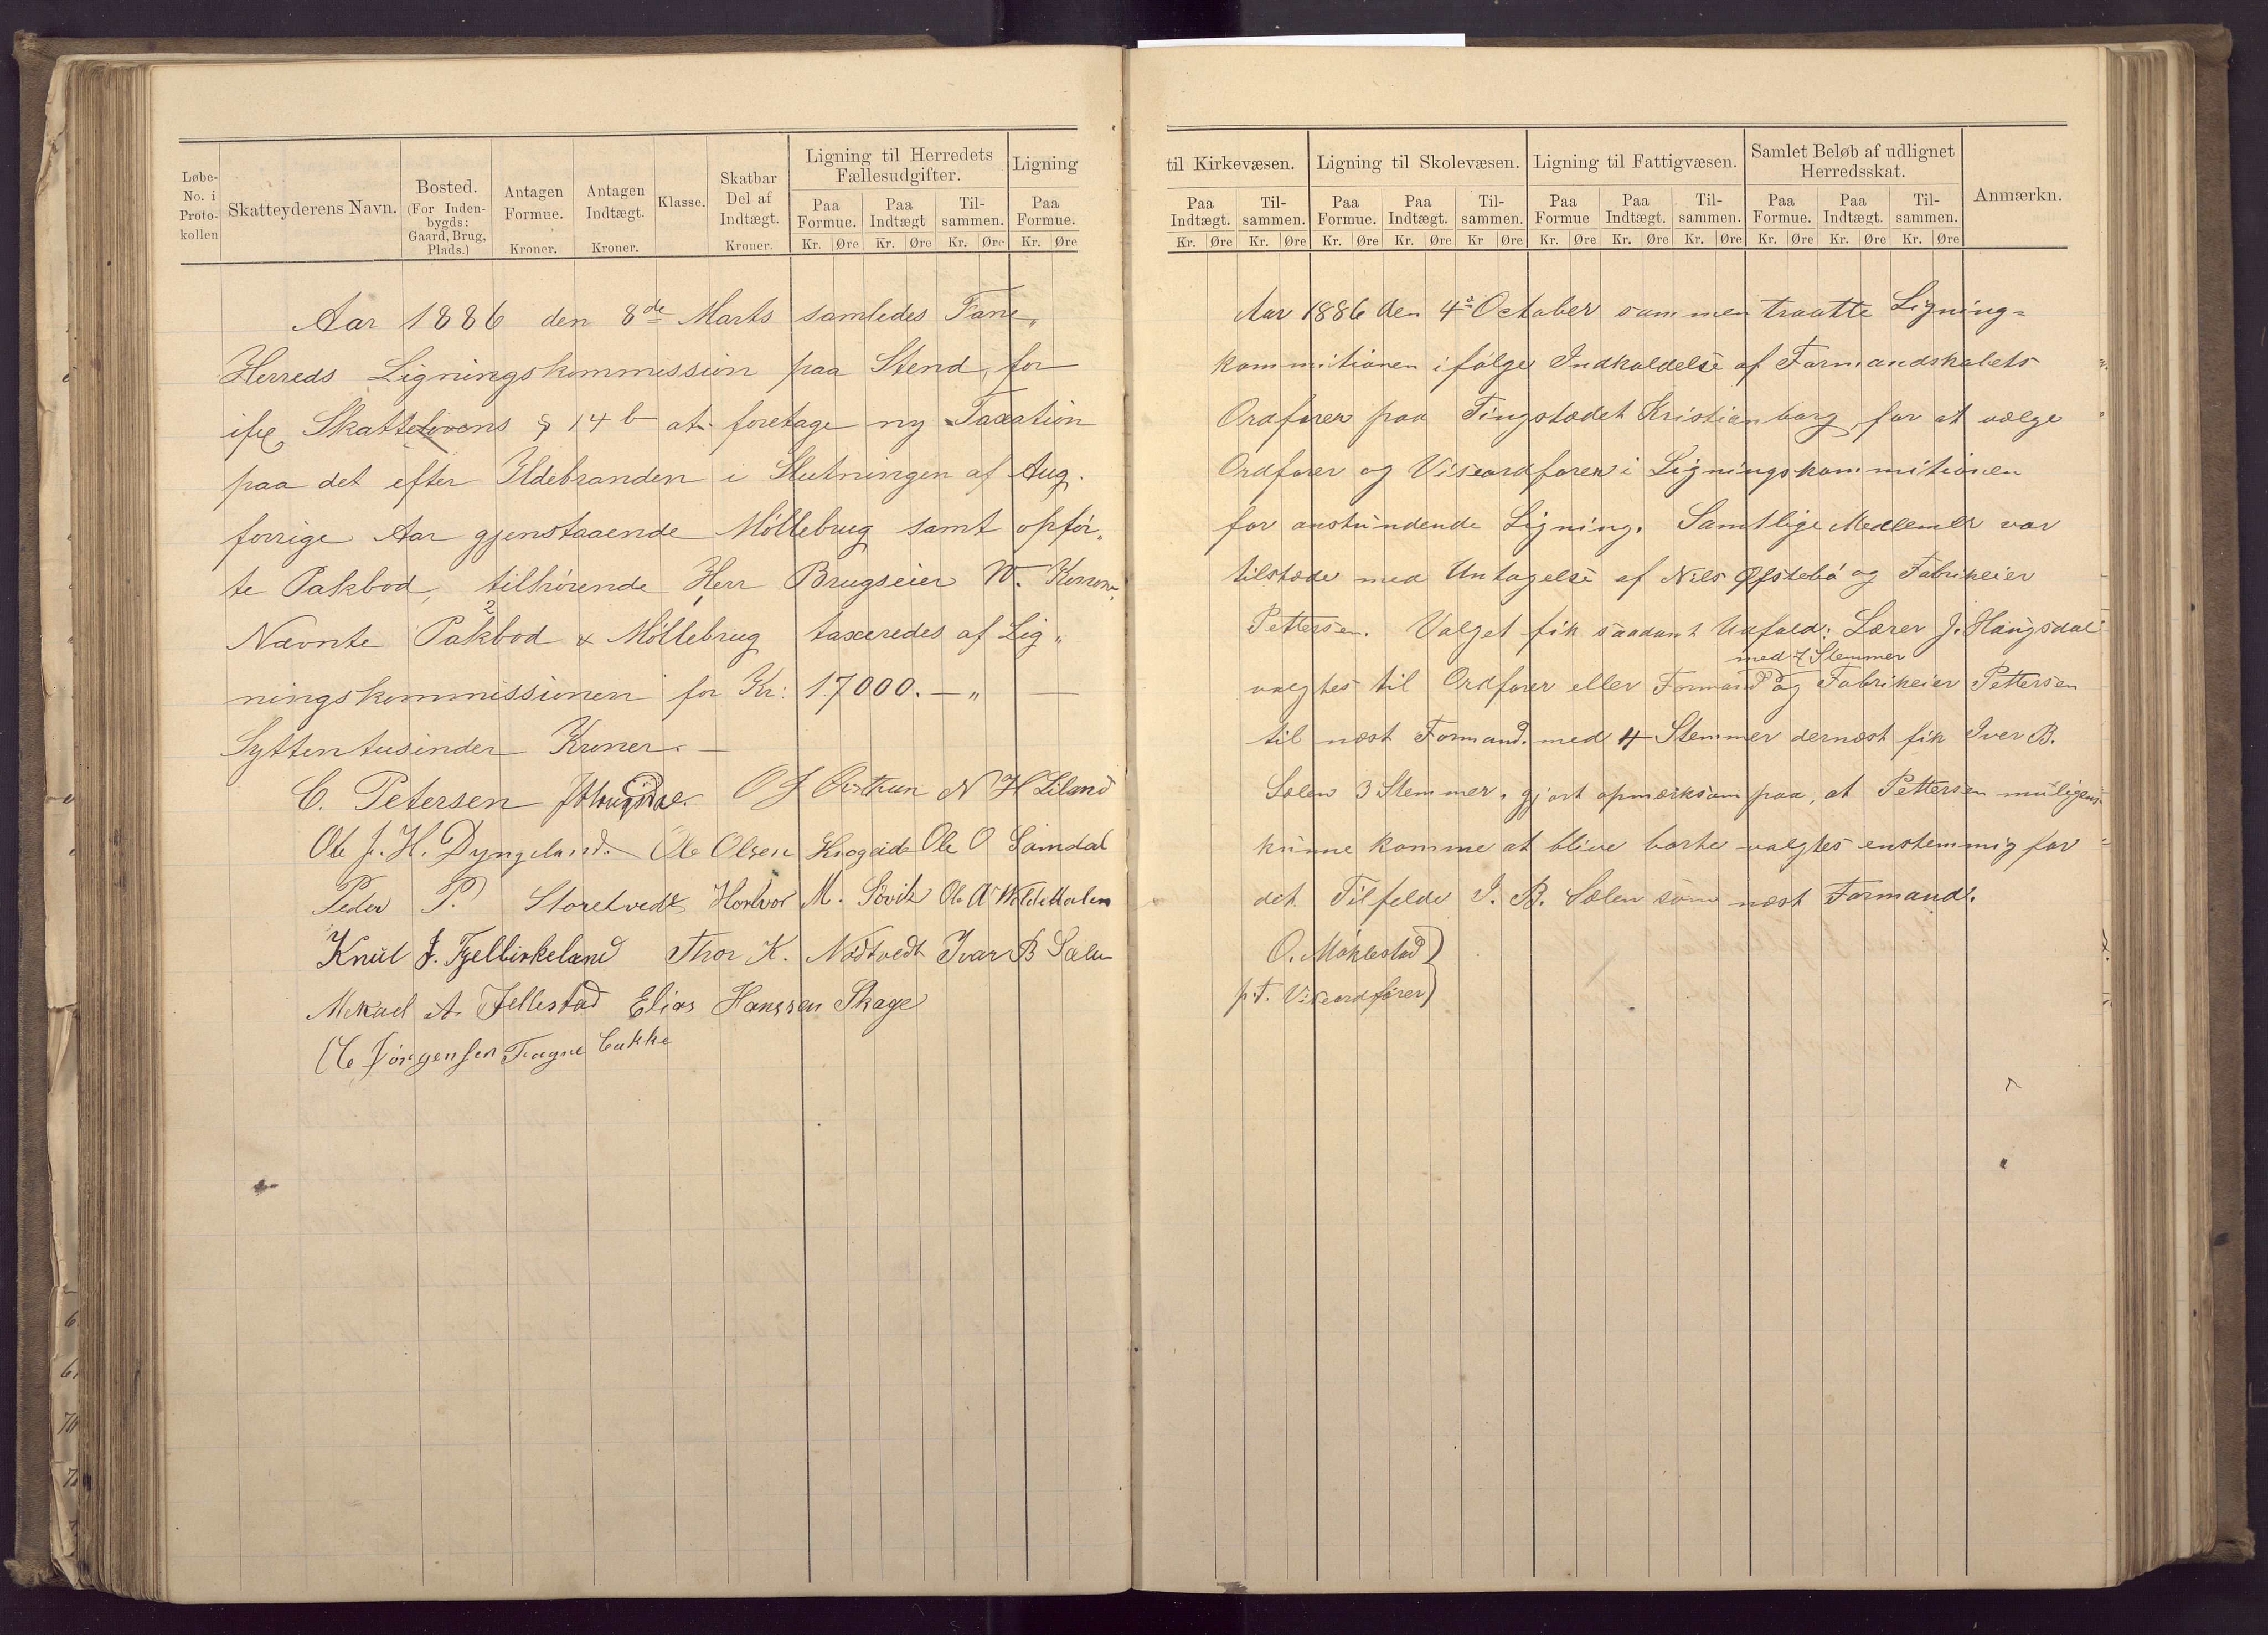 Løbe-No. i Proto-kollen
Skatteyderens Navn.
Bosted. (For Inden-bygds: Gaard, Brug, Plads.)
Antagen Formue. Kroner.
Antagen Indtægt. Kroner.
Klasse.
Skatbar Del af Indtægt. Kroner.
Ligning til Herredets Fællesudgifter.
Paa Formue. Paa Indtægt Til-sammen.
Kr. Øre Kr. Øre Kr. Øre
Ligning
Paa Formue.
Kr. Øre
Aar 1886 den 8de Marts samledes Fane„
Herreds Ligningskommission paa Stend, for
Skattelovens § 14 b at foretage ny Taxation
paa det efter Ildebranden i Slutningen af Aug.
forrige Aar gjenstaaende Möllebrug samt opfør„
te Pakbod, tilhörende Herr Brugseier W. Konow.
Nævnte 2 Pakbod & Möllebrug taxeredes af Lig„
ningskommissionen for Kr: 17000.— „ —
Syttentusinder Kroner.—
C. Petersen J. Haugsdal. O J N H Liland
Ole J. H. Dyngeland. Ole Olsen Krogeide Ole O Samdal
Peder P. Storetvedt M. Sövik Ole A
Knut J. Fjellbirkeland Thor K. Nödtvedt Ivar B Sælen
Mikael A. Fellestad Elias Hanssen Skage
Jörgensen
til Kirkevæsen.
Paa Indtægt. Til-sammen.
Kr. Øre Kr. Øre
Ligning til Skolevæsen.
Paa Formue. Paa Indtægt. Til-sammen.
Kr. Øre Kr. Øre Kr Øre
Ligning til Fattigvæsen.
Paa Formue Paa Indtægt. Til-sammen.
Kr. Øre Kr. Øre Kr. Øre
Samlet Beløb af udlignet Herredsskat.
Paa Formue. Paa Indtægt. Til-sammen.
Kr. Øre Kr. Øre Kr. Øre
Anmærkn.
Aar 1886 den 4de October sammen traatte Ligning=
kommitionen ifølge Indkaldelse af Formandskabets
Ordfører paa Tingstædet Kristianborg for at vælge
Ordfører og Viseordfører i Ligningskommitionen
for anstundende Ligning. Samtlige Medlemer var
tilstæde med Untagelse af Nils Øfstebö og Fabrikeier
Pettersen. Valget fik saadant Udfald: Lærer J. Haugsdal
med 7 Stemmer
valgtes til Ordfører eller Formand og Fabrikeier Pettersen
til næst Formand. med 4 Stemmer dernæst fik Iver B.
Sælen 3 Stemmer, gjort opmærksom paa, at Pettersen muligens
kunne komme at blive borte valgtes enstemmig for
det Tilfelde I. B. Sælen som næst Formand.
O. Möklestad)
p.T. Viseordfører)